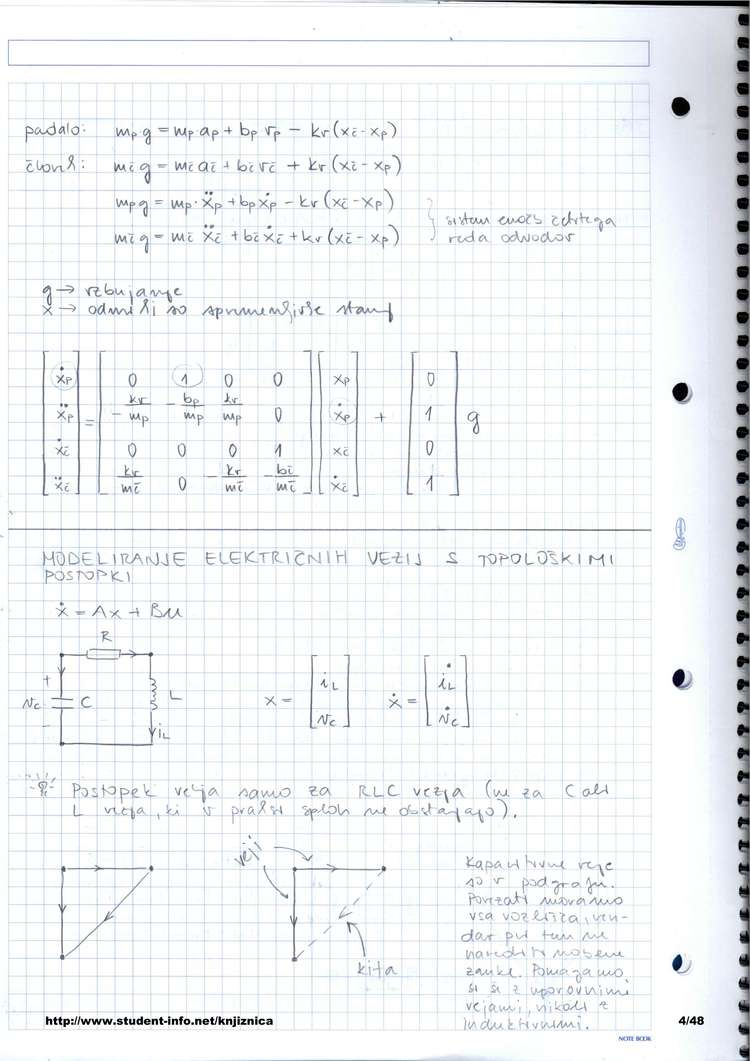 padalo: mₚ·g = mₚ·aₚ + bₚ vₚ − kᵥ(x_č − xₚ)
človk: m_č g = m_č a_č + b_č v_č + kᵥ(x_č − xₚ)
mₚ g = mₚ·ẍₚ + bₚẋₚ − kᵥ(x_č − xₚ)
m_č g = m_č ẍ_č + b_č ẋ_č + kᵥ(x_č − xₚ)
sistem enačb četrtega
reda odvodov
g → vzbujanje
x → odmiki so spremenljivke stanj
[ẋₚ] = [0 1 0 0] [xₚ] + [0]
[ẍₚ] [−kᵥ/mₚ −bₚ/mₚ kᵥ/mₚ 0] [ẋₚ] [1] g
[ẋ_č] [0 0 0 1] [x_č] [0]
[ẍ_č] [kᵥ/m_č 0 −kᵥ/m_č −b_č/m_č] [ẋ_č] [1]
MODELIRANJE ELEKTRIČNIH VEZIJ S TOPOLOŠKIMI
POSTOPKI
ẋ = Ax + Bu
R
+
v_C C L
−
i_L
x = [i_L v_C] ẋ = [i̇_L v̇_C]
Postopek velja samo za RLC vezja (ne za C ali
L vezja, ki v praksi sploh ne obstajajo).
veji
kita
Kapacitivne veje
so v podgrafu.
Povezati moramo
vsa vozlišča, ven-
dar pri tem ne
narediti nobene
zanke. Pomagamo
si še z uporovnimi
vejami, nikoli z
induktivnimi.
http://www.student-info.net/knjiznica
4/48
NOTE BOOK